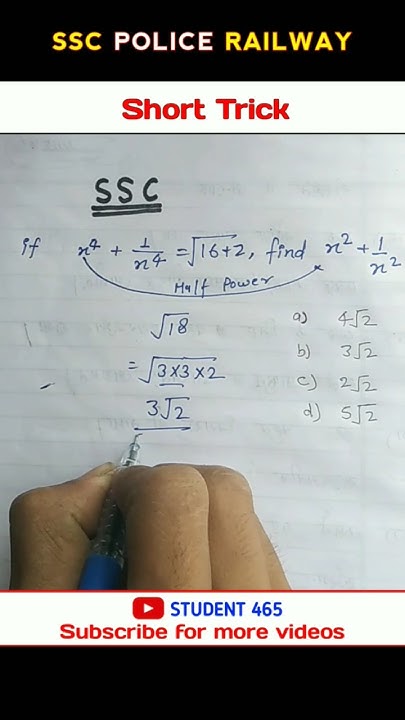 SSC POLICE RAILWAY
Short Trick
SSC
if x⁴ + 1/x⁴ = √16+2, find x² + 1/x²
Half Power
√18
= √3×3×2
3√2
a) 4√2
b) 3√2
c) 2√2
d) 5√2
STUDENT 465
Subscribe for more videos